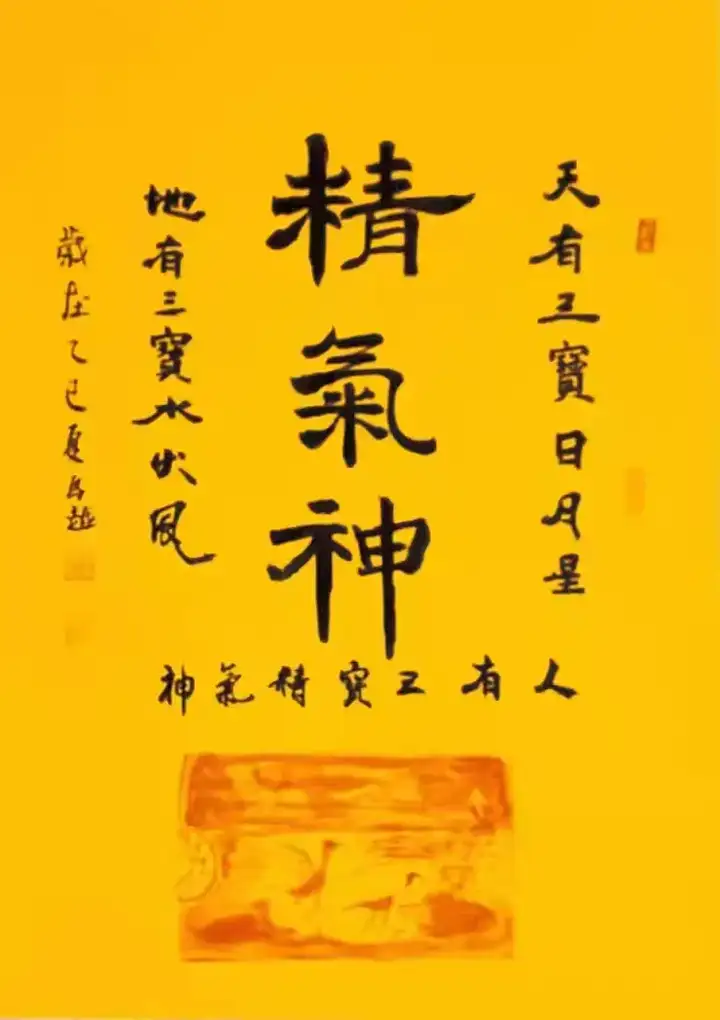 天有三寶日月星
精氣神
地有三寶水火風
人有三寶精氣神
歲在乙巳夏